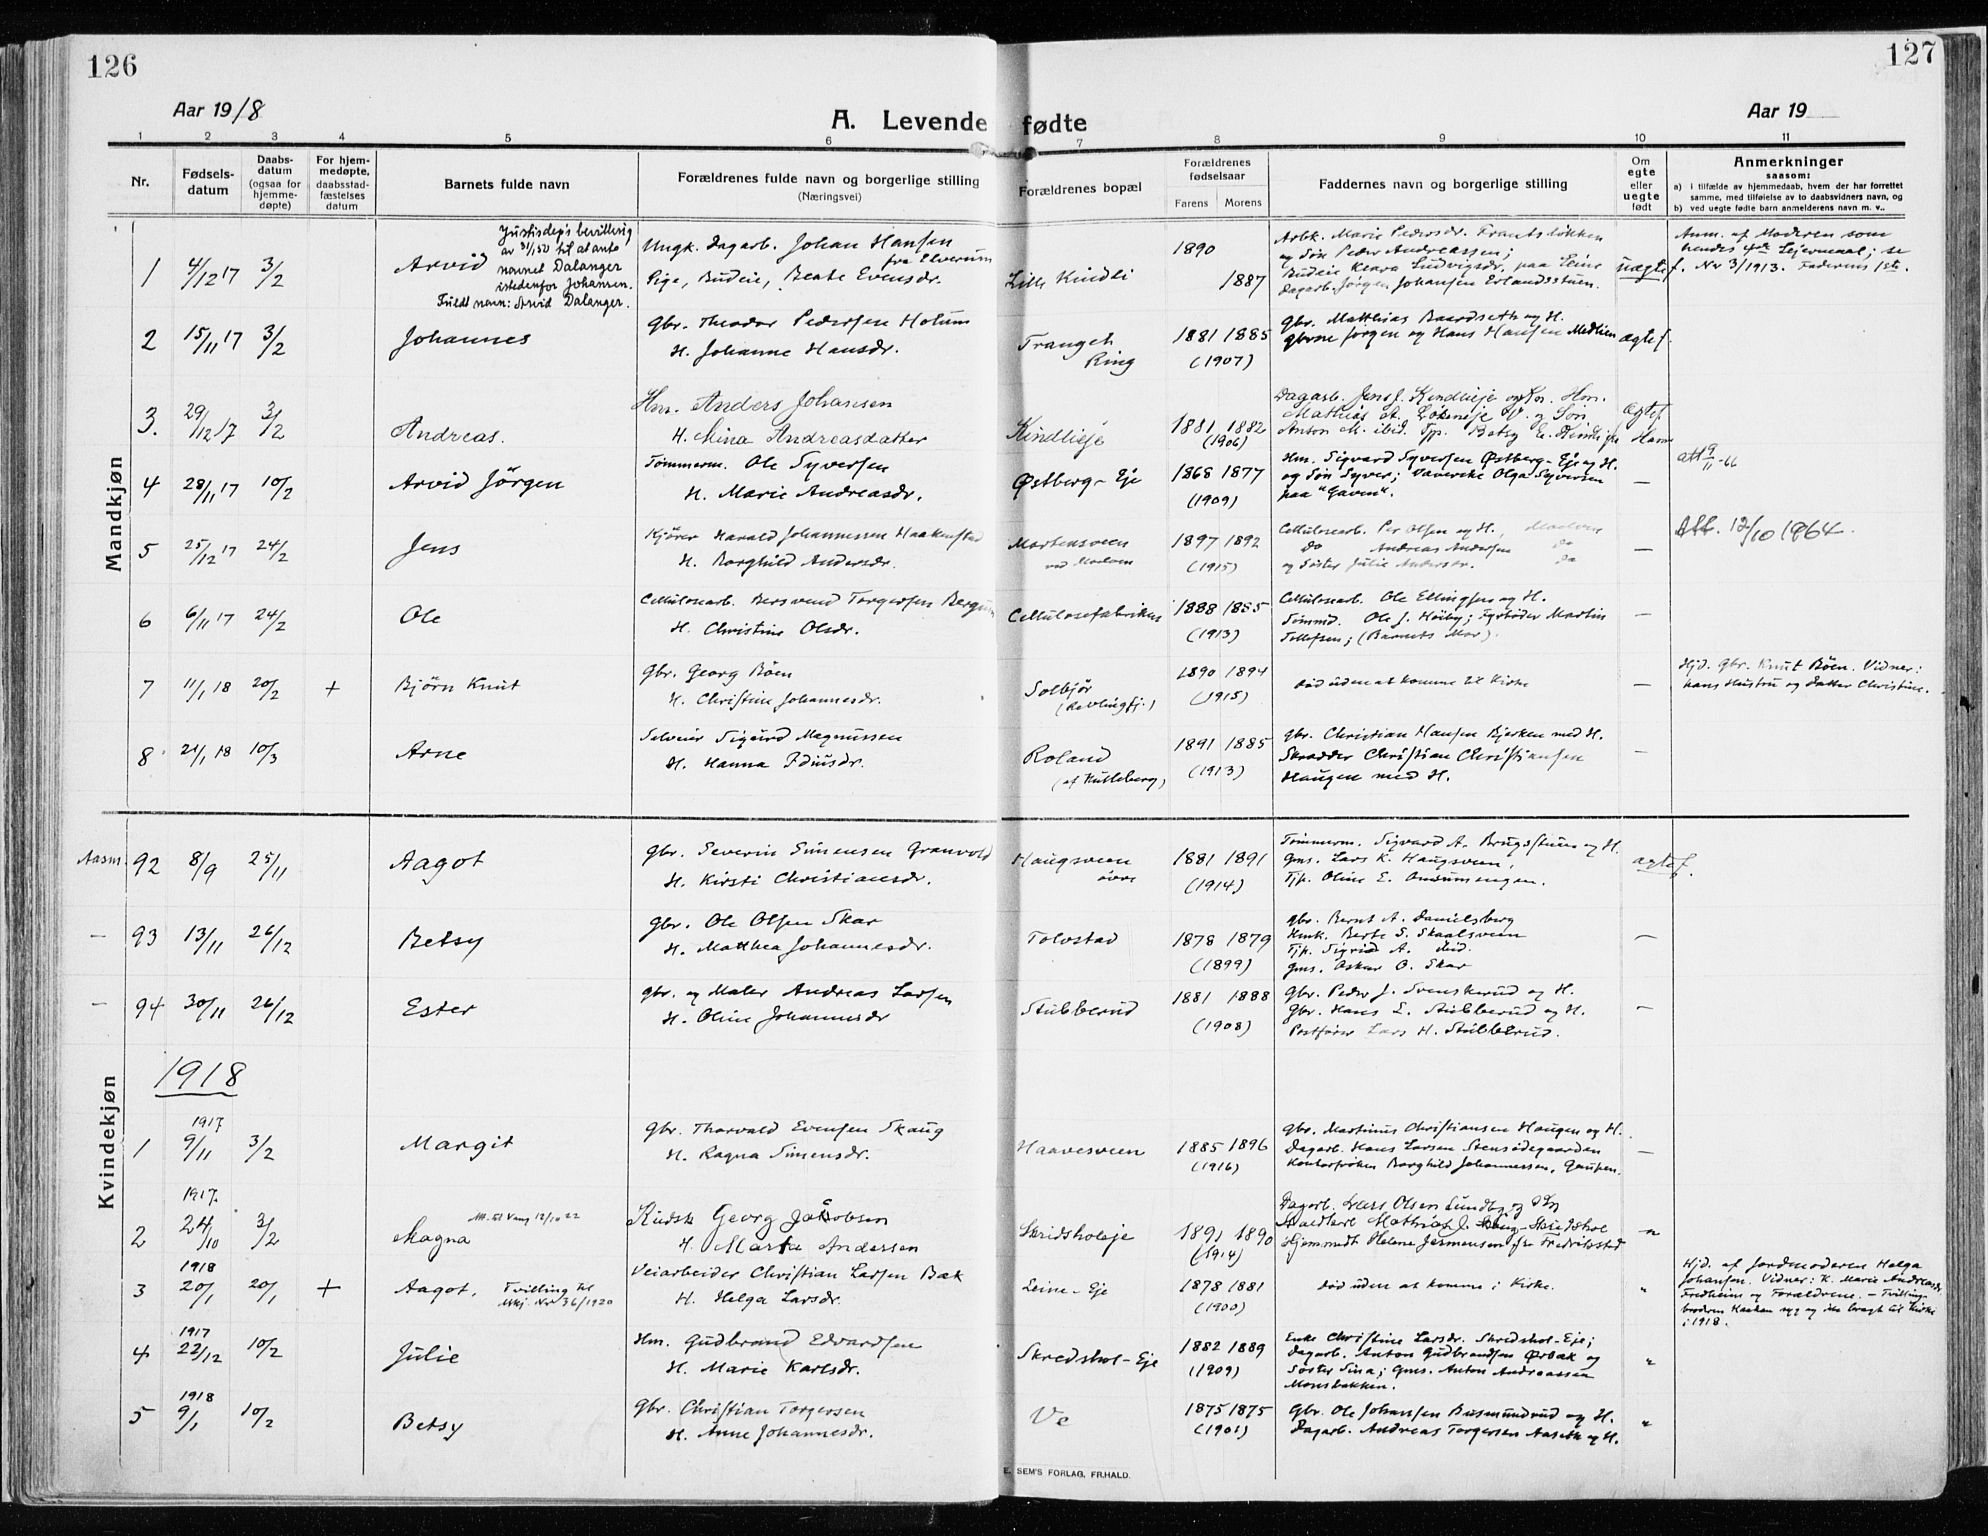 126
127
Aar 1918
A. Levende fødte
Aar 19
1 2 3 4 5 6 7 8 9 10 11
Nr.
Fødsels-datum
Daabs-datum (ogsaa for hjemme-døpte)
For hjem-medøpte, daabsstad-fæstelses datum
Barnets fulde navn
Forældrenes fulde navn og borgerlige stilling (Næringsvei)
Forældrenes bopæl
Forældrenes fødselsaar
Farens Morens
Faddernes navn og borgerlige stilling
Om egte eller uegte født
Anmerkninger saasom:
a) i tilfælde av hjemmedaab, hvem der har forrettet samme, med tilføielse av to daabsvidners navn, og
b) ved uegte fødte barn anmelderens navn m. v..
Mandkjøn
1 4/12 17 3/2 Arvid
Justisdep's bevilling av 31/1 50 til at anta navnet Dalanger istedenfor Johansen. Fuldt navn: Arvid Dalanger.
Ungk. Dagarb. Johan Hansen fra Elverum
Pige, Budeie, Beate Evensdr.
Lille Kindli 1890 1887
Arbk. Marie Pedersdr. Frantsløkken
og Søn Peder Andreassen;
Budeie Klara Ludvigsdr. paa Leine
Dagarb. Jørgen Johansen Erlandsstuen.
uægtef.
Anm. af Moderen som hendes 4de Lejermaal; se Nr 3/1913. Faderens 1ste.
2 15/11 17 3/2 Johannes
Gbr. Theodor Pedersen Holum
H. Johanne Hansdr.
Tranget Ring 1881 1885 (1907)
Gbr. Matthias Baardseth og H.
Gbrne Jørgen og Hans Hansen Medlien
ægtef.
3. 29/12 17 3/2 Andreas.
Hm. Anders Johansen
H. Mina Andreasdatter
Kindlieje 1881 1882 (1906)
Dagarb. Jens J. Kindlieje og Kn. Hm.
Mathias A. Løkeneje og Søn
Anton M. ibid. Tjp. Betsy E.
Ægtef.
4 28/11 17 10/2 Arvid Jörgen
Tømmerm. Ole Syversen
H. Marie Andreasdr.
Østberg-Eje 1868 1877 (1909)
Hm. Sigvard Syversen Østberg-Eje og H.
og Søn Syver; Væverske Olga Syversen
paa "Gaven".
—
att 9/11-66
5 25/12 17 24/2 Jens
Kjører Harald Johannessen Haakenstad
H. Borghild Andersdr.
Mortensveen ved Moelven 1897 1892 (1915)
Cellulosearb. Per Olsen og H., Moelven
Do Andreas Andersen Do
og Søster Julie Andersdr. Do
—
Att. 12/10 1964.
6 6/11 17 24/2 Ole
Cellulosearb. Bersvend Torgersen Bergum
H. Christine Olsdr.
Cellulosefabriken 1888 1885 (1913)
Cellulosearb. Ole Ellingsen og H.
Tømmd. Ole J. Høiby; Fyrbøder Martin
Tollefsen; (Barnets Mor).
—
7 11/1 18 20/2 + Bjørn Knut
Gbr. Georg Bøen
H. Christine Johannesdr.
Solbjør (Revlingfj.) 1890 1894 (1915)
død uden at komme til Kirke
—
Hjd. gbr. Knut Bøen. Vidner: hans Hustru og Datter Christine.
8 21/1 18 10/3 Arne
Selveier Sigurd Magnussen
H. Hanna Idiusdr.
Roland (af Hulleberg) 1891 1885 (1913)
Gbr. Christian Hansen Bjerken med H.
Skrædder Christian Christiansen
Haugen med H.
—
Kvindekjøn
Aasm. 92 8/9 25/11 Aagot
Gbr. Severin Simensen Granvold
H. Kirsti Christiansdr.
Haugsveen øvre 1881 1891 (1914)
Tømmerm. Sigvard A. Brugsstuen og H.
Gms. Lars K. Haugsveen,
Tjp. Oline E.
ægtef.
— 93 13/11 26/12 Betsy
Gbr. Ole Olsen Skar
H. Matthea Johannesdr.
Tolvstad 1878 1879 (1899)
Gbr. Bernt A. Danielsberg
Enk. Berte S. Skaalsveen
Tjp. Sigrid A. ibid.
Gms. Oskar O. Skar
—
— 94 30/11 26/12 Ester
Gbr. og Maler Andreas Larsen
H. Oline Johannesdr
Stubberud 1881 1888 (1908)
Gbr. Peder J. Svenskerud og H.
Gbr. Hans L. Stubberud og H.
Postfører Lars H. Stubberud.
—
1918
1 1917 9/11 3/2 Margit
Gbr. Thorvald Evensen Skaug
H. Ragna Simensdr.
Haavesveen 1885 1896 (1916)
Gbr. Martinus Christiansen Haugen og H.
Dagarb. Hans Larsen Stensødegaarden
Kontorfrøken Borghild Johannessen, Gaupen.
—
2 1917. 24/10 3/2 Magna
Att. til Vang 12/10 22
Kudsk Georg Jacobsen
H. Marta Andersen
Skridsholeje 1891 1890 (1914)
Dagarb. Lars Olsen Sundby og
Mathias J.
Hjemmedt Helene Jermensen fra Fredrikstad
"
3 1918 20/1 20/1 + Aagot,
Tvilling til Mkj. Nr 36/1920
Veiarbeider Christian Larsen Bak
H. Helga Larsdr.
Leine-Eje 1878 1881 (1900)
død uden at komme i Kirke.
"
Hjd. af Jordmoderen Helga Johansen. Vidner: K. Marie Andreasdr Fredheim og Forældrene. — Tvillingbroderen Haakon syg og ikke bragt til Kirke i 1918.
4 1917 22/12 10/2 Julie
Hm. Gudbrand Edvardsen
H. Marie Karlsdr.
Skredshol-Eje 1882 1889 (1909)
Enke Christine Larsdr. Skredshol-Eje;
Dagarb. Anton Gudbrandsen Ørbak og
Søster Sina; Gms. Anton Andreassen
Monsbakken.
"
5 1918 9/1 10/2 Betsy
Gbr. Christian Torgersen
H. Anne Johannesdr.
Ve 1875 1875 (1901)
Gbr. Ole Johansen Busmundrud og H.
Dagarb. Andreas Torgersen Aaseth og H.
"
E. SEM'S FORLAG, FR.HALD.